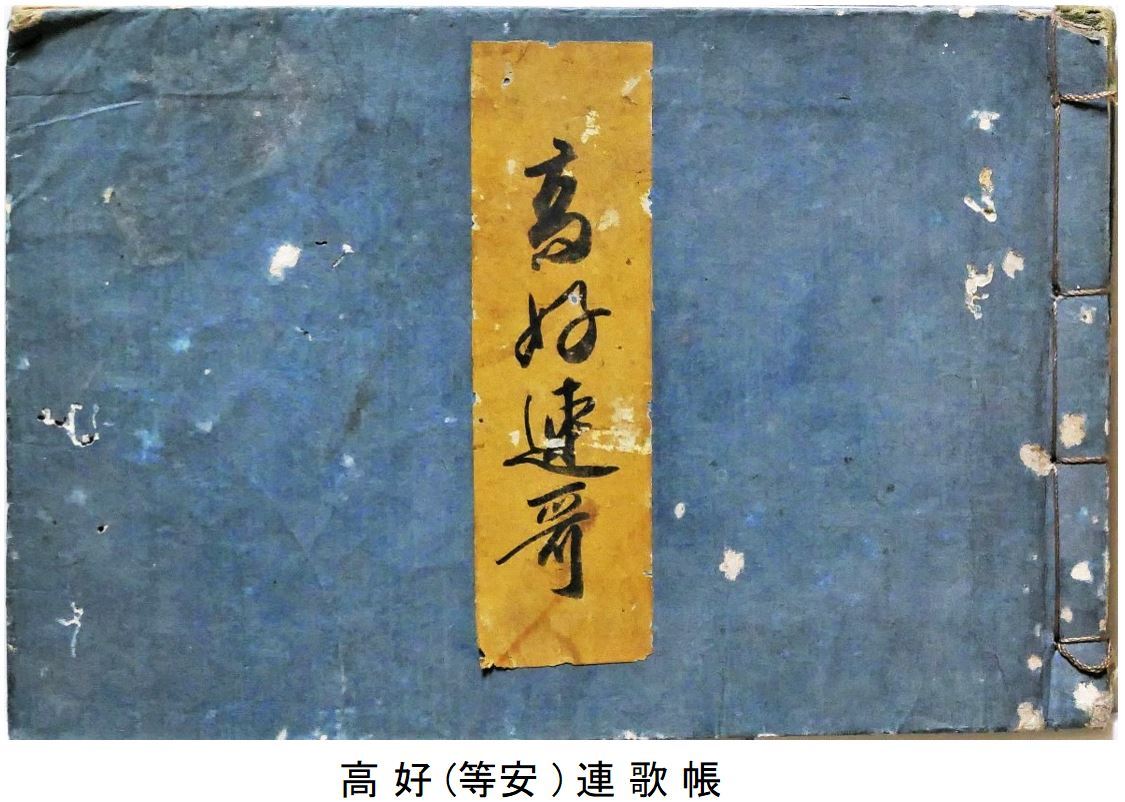 高好連哥
高好(等安)連歌帳